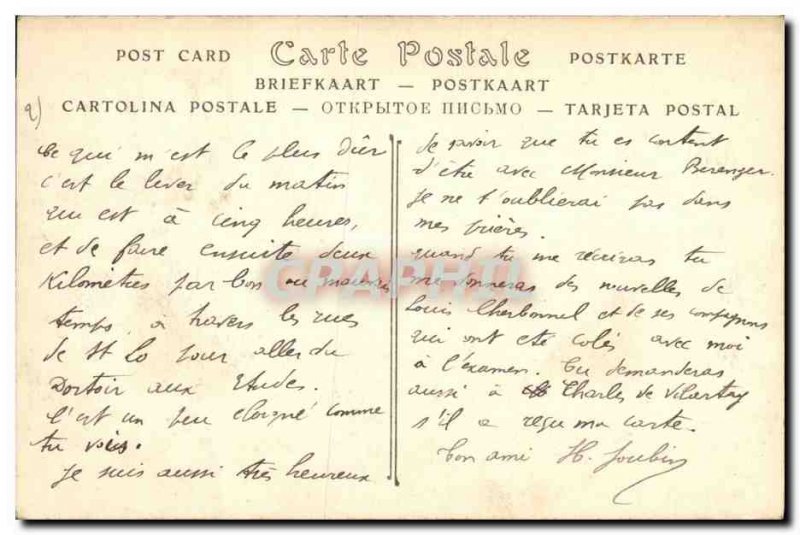 POST CARD Carte Postale POSTKARTE
BRIEFKAART — POSTKAART
CARTOLINA POSTALE — ОТКРЫТОЕ ПИСЬМО — TARJETA POSTAL
2)
Ce qui m'est le plus dûr
c'est le lever du matin
qui est à cinq heures,
et de faire ensuite deux
Kilomètres par bon ou mauvais
temps, à travers les rues
de St Lo pour aller du
Dortoir aux Etudes.
C'est un peu eloigné comme
tu vois.
Je suis aussi très heureux
de savoir que tu es content
d'être avec Monsieur Berenger.
Je ne t'oublierai pas dans
mes prières.
quand tu me récriras tu
me donneras des nouvelles de
Louis Cherbonnel et de ses compagnons
qui ont été colés avec moi
à l'éxamen. Tu demanderas
aussi à Charles de
s'il a reçu ma carte.
Ton ami H. Joubin
CPARHD